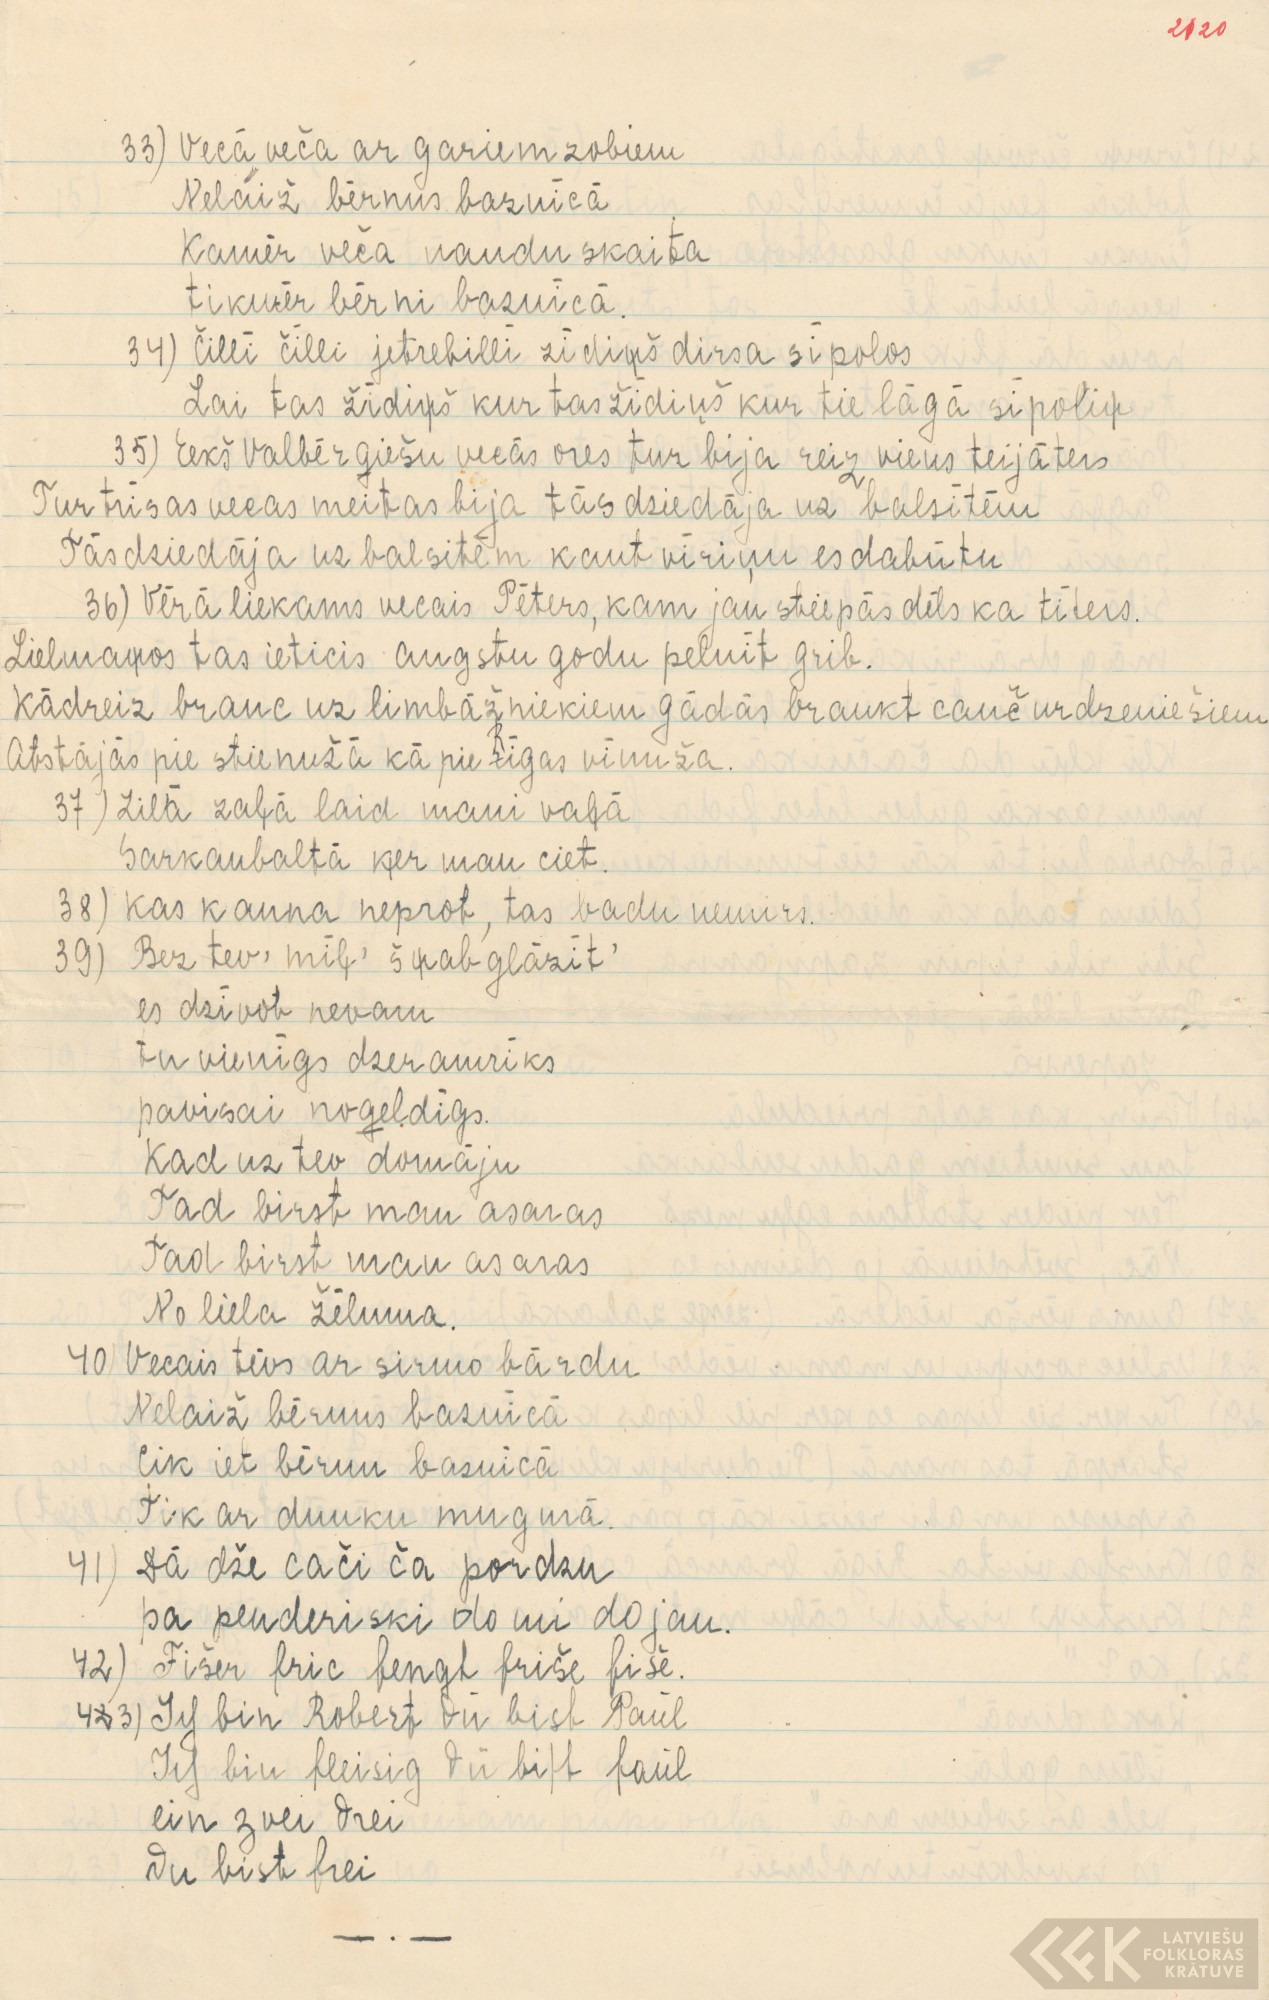 2120
33) Vecā veča ar gariem zobiem
Nelaiž bērnus baznīcā
Kamēr veča naudu skaita
tikmēr bērni baznīcā.
34) čilli čilli jetrebilli zīdiņš dirsa sīpolos
Lai tas žīdiņš kur tas žīdiņš kur tie lāgā sīpoliņ
35) Eekš Valbērģiešu vecās ores tur bija reiz viens teijāters
Tur trīsas vecas meitas bija tās dziedāja uz balsītēm
Tās dziedāja uz balsitēm kaut vīriņu es dabūtu
36) Vērā liekams vecais Pēters, kam jau stiepās dēls ka tīters.
Lielmaņos tas ieticis augstu godu pelnīt grib.
Kādreiz branc uz limbāžniekiem gādās braukt cauč urdzeniešiem
Atstājās pie stienužā kā pie Rīgas vīnuža.
37) Zilā zaļā laid mani vaļā
Sarkanbaltā ķer man ciet.
38) Kas kauna neprot, tas badu nemirs.
39) Bez tev' mīļ' šņabglāzīt'
es dzīvot nevaru
tu vienīgs dzeramrīks
pavisai nogeldīgs.
Kad uz tev domāju
Tad birst man asaras
Tad birst man asaras
No liela žēluma.
40 Vecais tēvs ar sirmo bārdu
Nelaiž bērnus baznīcā
Cik iet bērnu baznīcā
Tik ar dunku mugurā.
41) Dā dže cači ča pordzu
pa penderiski do mi do jau.
42) Fišer fric fengt friše fiše.
43) Ich bin Robert du bist Paul
Ich bin fleisig du bist faul
ein zvei drei
Du bist frei
— . —
LATVIEŠU
FOLKLORAS
KRĀTUVE